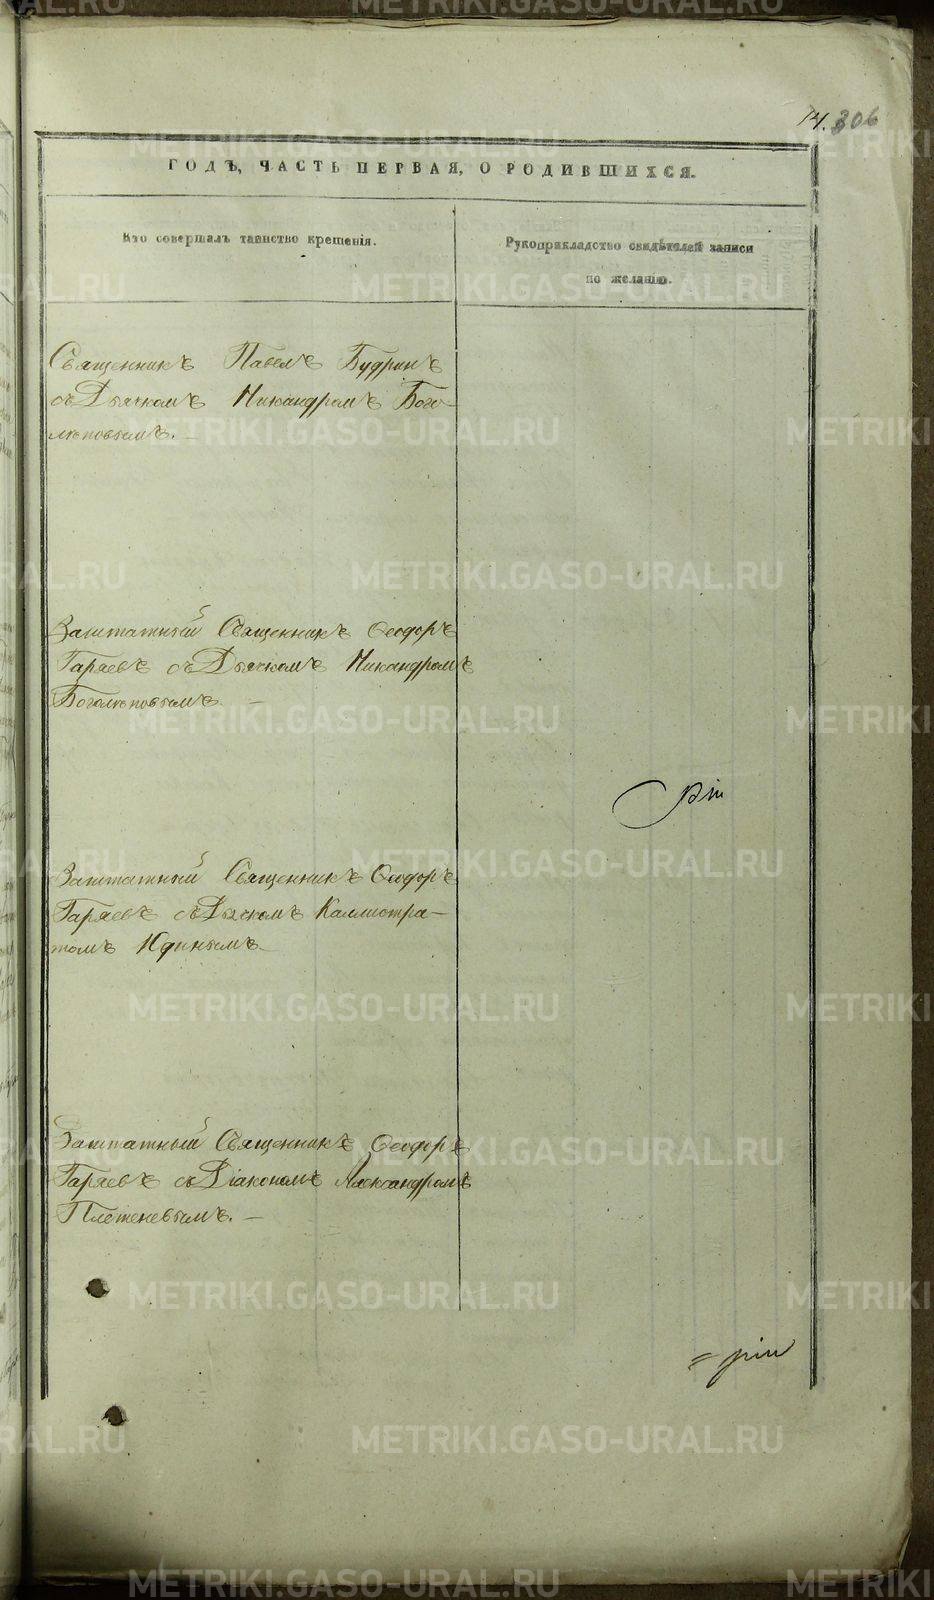 14. 306
ГОДЪ, ЧАСТЬ ПЕРВАЯ, О РОДИВШИХСЯ.
Кто совершалъ таинство крещенія.
Рукоприкладство свидѣтелей записи
по желанію.
Священникъ Павелъ Будринъ
съ Дьячкомъ Никандромъ Бого-
лѣповымъ. —
Заштатный Священникъ Ѳеодоръ
Гаряевъ съ Дьячкомъ Никандромъ
Боголѣповымъ —
Заштатный Священникъ Ѳеодоръ
Гаряевъ съ Дьячкомъ Каллистра-
томъ Юдинымъ
Заштатный Священникъ Ѳеодоръ
Гаряевъ съ Діакономъ Александромъ
Плетеневымъ. —
METRIKI.GASO-URAL.RU